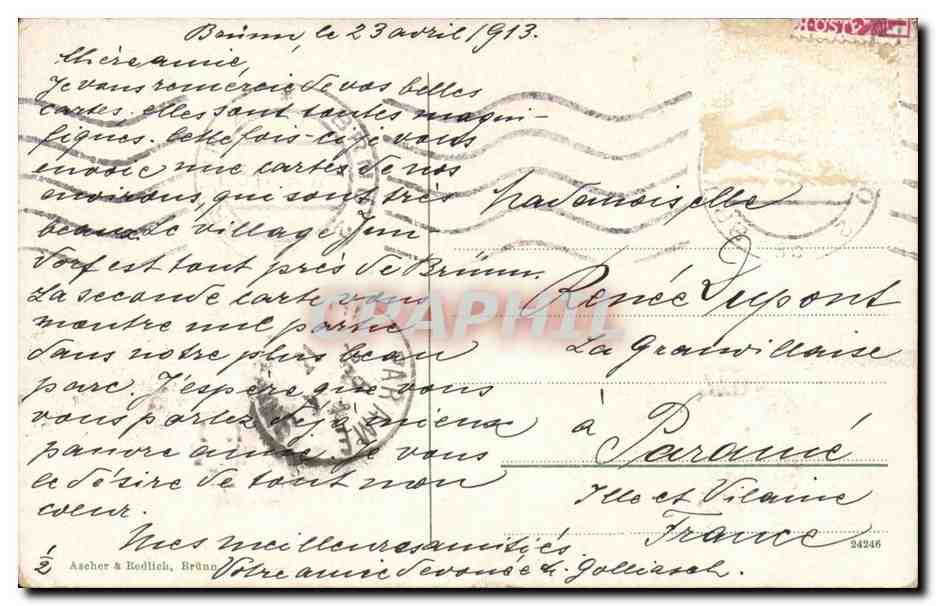 Brünn le 23 avril 1913.
Chère amie,
Je vous remercie de vos belles
cartes. elles sont toutes magni-
fiques. Cette fois-ci je vous
envoie une cartes de nos
environs, qui sont très
beaux. Le village
dorf est tout près de Brünn.
La seconde carte vous
montre une partie
dans notre plus beau
parc. J'espère que vous
vous portez déjà mieux
pauvre amie. Je vous
le désire de tout mon
coeur.
Mes meilleures amitiés.
Votre amie devouée h. Golliasch.
Mademoiselle
Renée Dupont
La Granvillaise
à Paramé
Ille et Vilaine
France
1/2
Ascher & Redlich, Brünn
24246
CARTAPHIL
PARAMÉ
POSTE